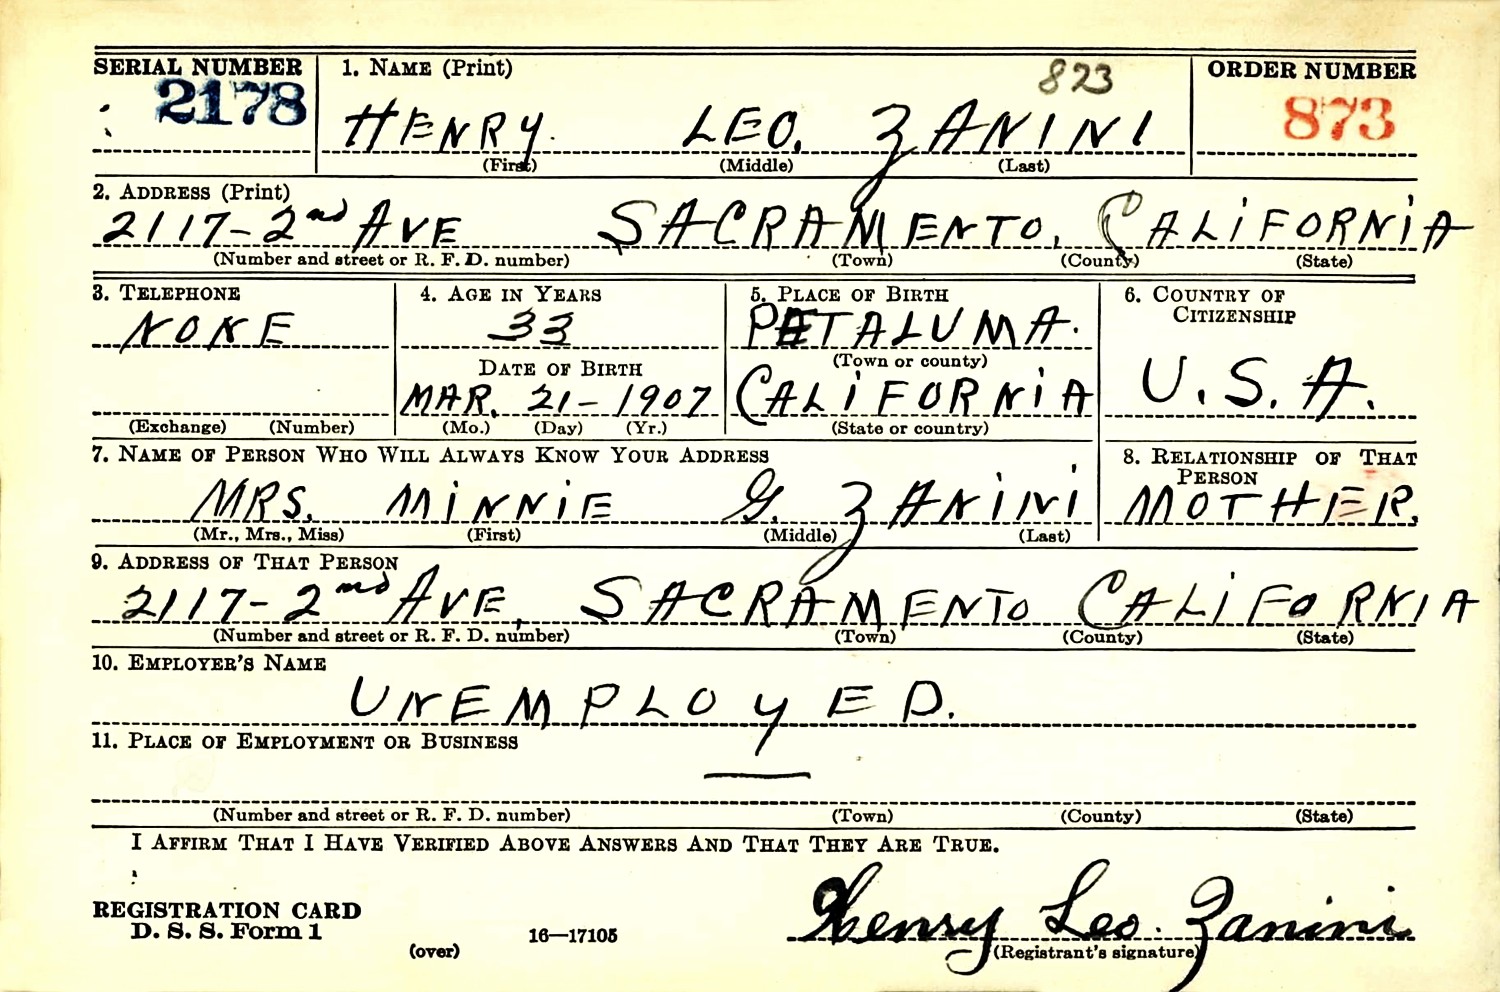 SERIAL NUMBER 1. NAME (Print) 823 ORDER NUMBER
2178 HENRY. LEO. ZANINI 873
(First) (Middle) (Last)
2. ADDRESS (Print)
2117-2nd AVE SACRAMENTO, CALIFORNIA
(Number and street or R. F. D. number) (Town) (County) (State)
3. TELEPHONE 4. AGE IN YEARS 5. PLACE OF BIRTH 6. COUNTRY OF CITIZENSHIP
NONE 33 PETALUMA.
DATE OF BIRTH (Town or county) U.S.A.
MAR. 21-1907 CALIFORNIA
(Exchange) (Number) (Mo.) (Day) (Yr.) (State or country)
7. NAME OF PERSON WHO WILL ALWAYS KNOW YOUR ADDRESS 8. RELATIONSHIP OF THAT PERSON
MRS. MINNIE G. ZANINI MOTHER.
(Mr., Mrs., Miss) (First) (Middle) (Last)
9. ADDRESS OF THAT PERSON
2117-2nd AVE, SACRAMENTO CALIFORNIA
(Number and street or R. F. D. number) (Town) (County) (State)
10. EMPLOYER'S NAME
UNEMPLOYED.
11. PLACE OF EMPLOYMENT OR BUSINESS
—
(Number and street or R. F. D. number) (Town) (County) (State)
I AFFIRM THAT I HAVE VERIFIED ABOVE ANSWERS AND THAT THEY ARE TRUE.
REGISTRATION CARD Henry Leo. Zanini
D. S. S. Form 1 (over) 16—17105 (Registrant's signature)